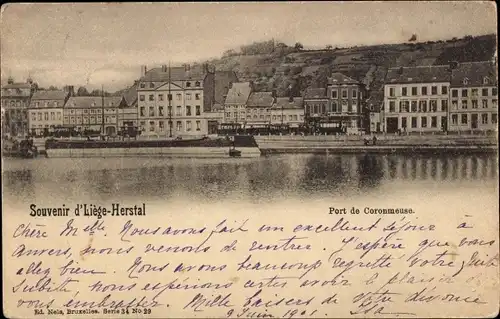 Souvenir d'Liège-Herstal
Port de Coronmeuse.
Chère Melle. Nous avons fait un excellent séjour à
Anvers, nous venons de rentrer. J'espère que vous
allez bien. Nous avons beaucoup regretté votre
subite nous espérions certes avoir le plaisir
vous embrasser. Mille baisers de
9 Juin 1901.
Ed. Nels, Bruxelles. Serie 34 No 29